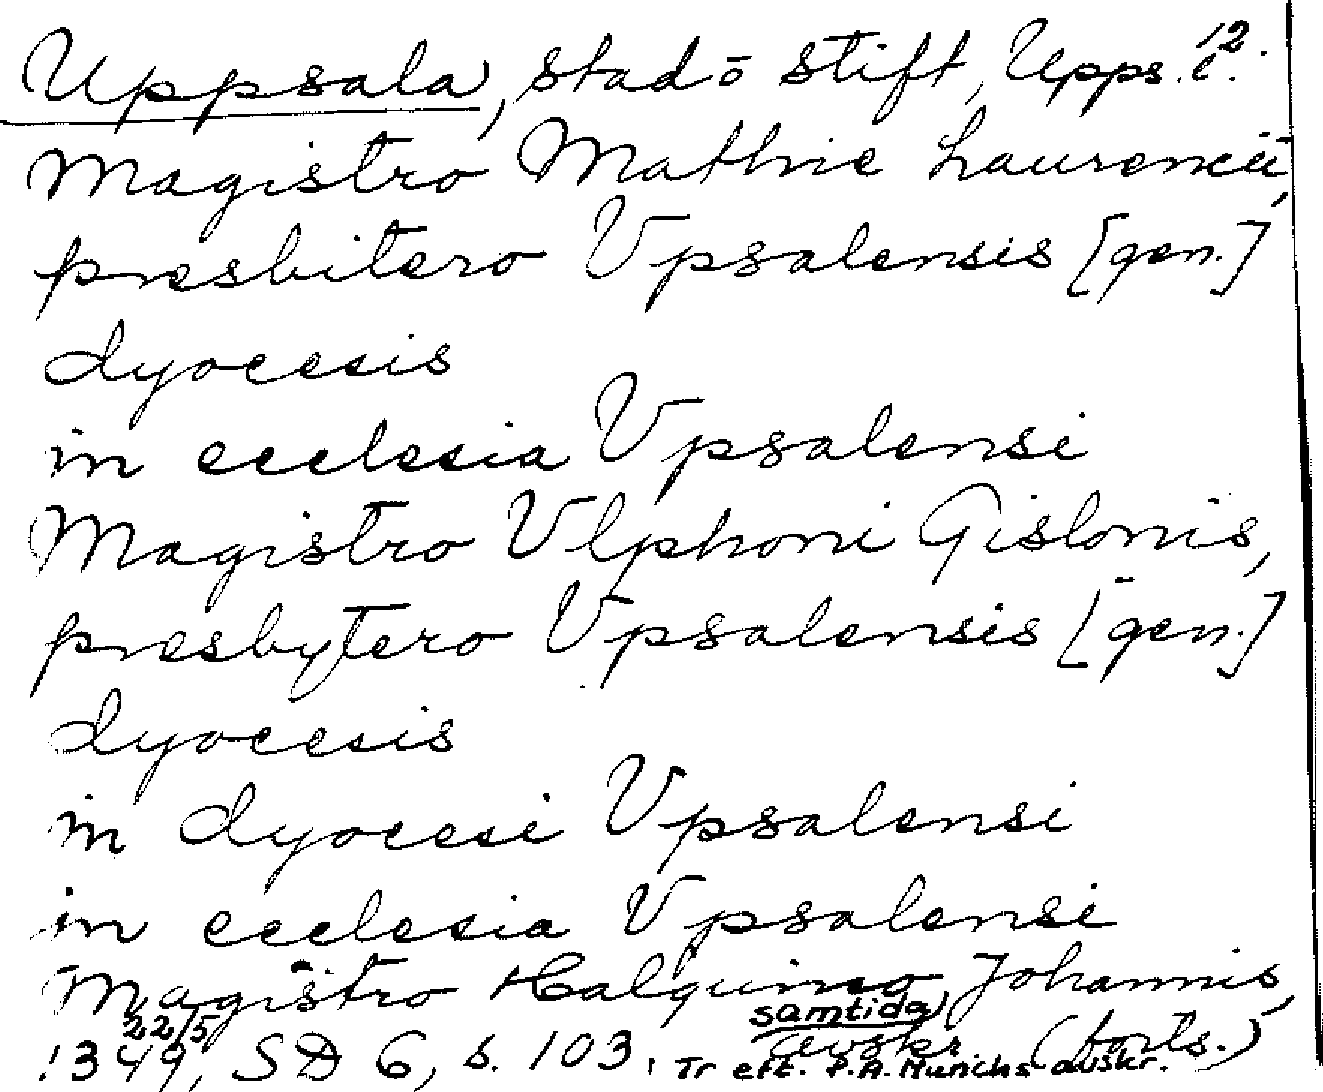 Uppsala, stad o stift, Upps. l. 12.
Magistro Mathie Laurencii,
presbitero Vpsalensis [gen.]
dyocesis
in ecclesia Vpsalensi
Magistro Vlphoni Gislonis,
presbytero Vpsalensis [gen.]
dyocesis
in dyocesi Vpsalensi
in ecclesia Vpsalensi
Magistro Halquino Johannis,
1349 22/5, SD 6, s. 103, samtida avskr (forts.)
Tr eft. P.A. Munchs avskr.